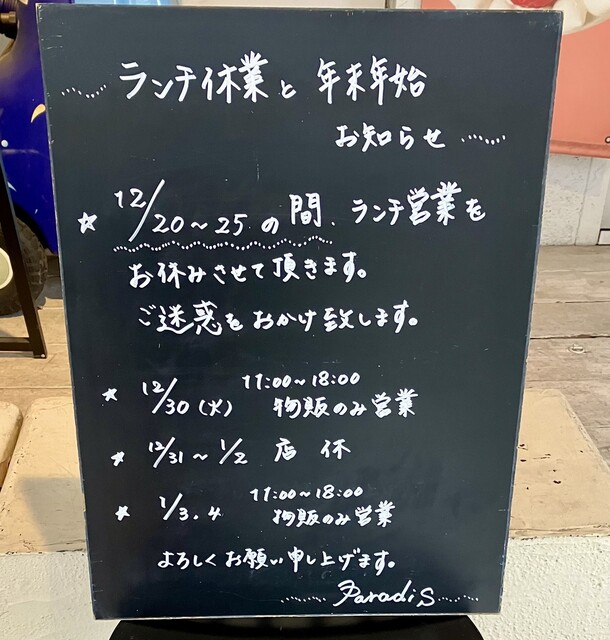 ランチ休業と 年末年始
お知らせ
☆ 12/20~25の間、ランチ営業を
お休みさせて頂きます。
ご迷惑をおかけ致します。
★ 12/30(水) 11:00~18:00 物販のみ営業
★ 12/31~1/2 店休
★ 1/3.4 11:00~18:00 物販のみ営業
よろしくお願い申し上げます。
Paradis